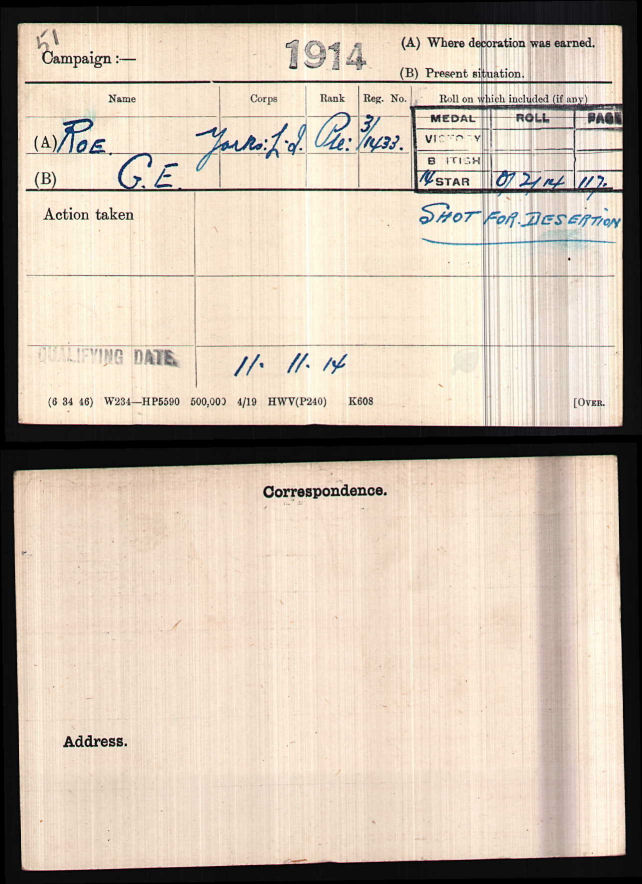 51
Campaign :—
1914
(A) Where decoration was earned.
(B) Present situation.
Name Corps Rank Reg. No. Roll on which included (if any)
MEDAL ROLL PAGE
(A) ROE. Yorks: L.I. Pte: 3/1433.
VICTORY
(B) G.E.
BRITISH
14 STAR 0/2/14 117.
Action taken
SHOT FOR DESERTION
QUALIFYING DATE. 11. 11. 14
(6 34 46) W234—HP5590 500,000 4/19 HWV(P240) K608 [OVER.
Correspondence.
Address.